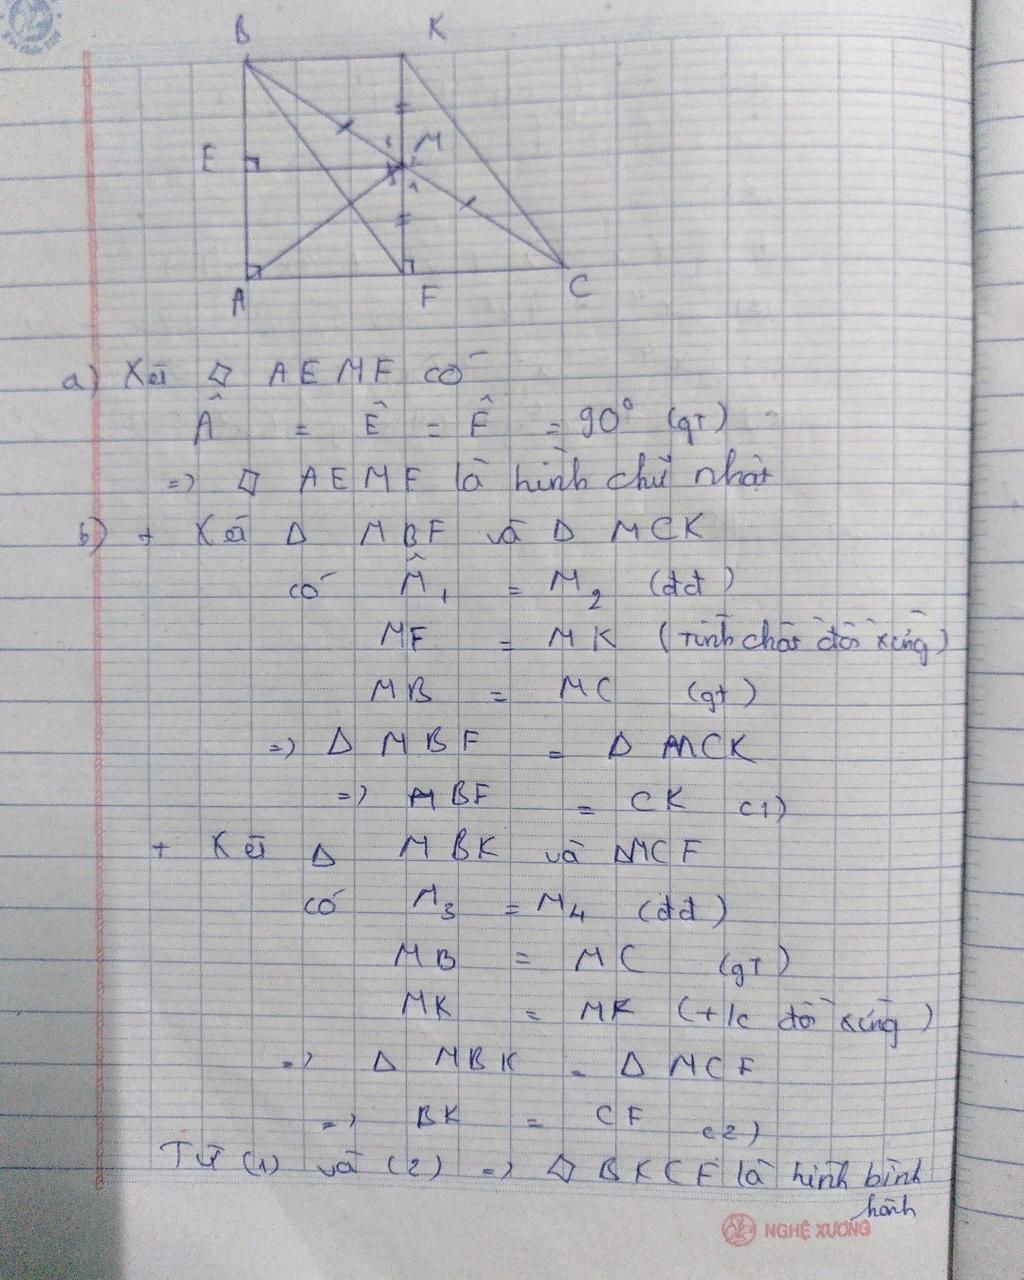 B K
E M
A F C
a) Xét ▱ AEMF có
Â = Ê = F̂ = 90° (gT)
=> ▱ AEMF là hình chữ nhật
b) + Xét Δ MBF và Δ MCK
có M̂₁ = M₂ (đđ)
MF = MK (tính chất đối xứng)
MB = MC (gt)
=> Δ MBF = Δ MCK
=> BF = CK (1)
+ Xét Δ MBK và ΔMCF
có M₃ = M₄ (đđ)
MB = MC (gT)
MK = MF (t/c đối xứng)
=> Δ MBK = Δ MCF
=> BK = CF (2)
Từ (1) và (2) => ▱ BKCF là hình bình
hành
NGHỆ XƯƠNG